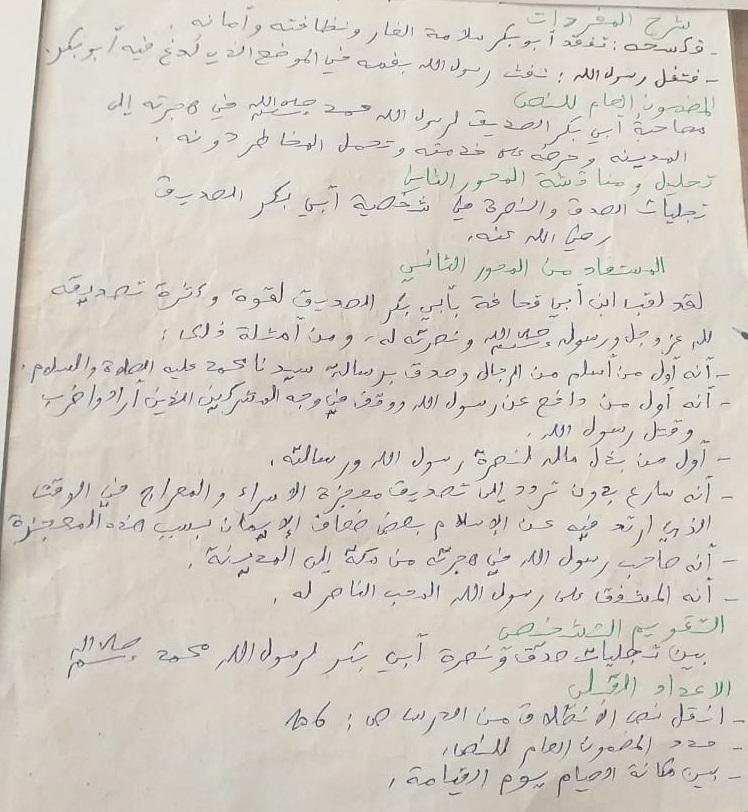 شرح المفردات
- فكسحه : تفقد أبو بكر سلامة الغار ونظافته وأمانه .
- فتفل رسول الله : نفث رسول الله بفمه في الموضع الذي لدغ فيه أبو بكر.
المضمون العام للنص
مصاحبة أبي بكر الصديق لرسول الله محمد ﷺ في هجرته إلى
المدينة وحرصه على خدمته وتحمل المخاطر دونه .
تحليل ومناقشة المحور الثاني
تجليات الصدق والنصرة في شخصية أبي بكر الصديق
رضي الله عنه.
المستفاد من المحور الثاني
لقد لقب ابن أبي قحافة بأبي بكر الصديق لقوة وكثرة تصديقه
لله عز وجل ورسوله ﷺ ونصرته له، ومن أمثلة ذلك :
- أنه أول من أسلم من الرجال وصدق برسالة سيدنا محمد عليه الصلاة والسلام .
- أنه أول من دافع عن رسول الله ووقف في وجه المشركين الذين أرادوا ضرب
وقتل رسول الله .
- أول من بذل ماله لنصرة رسول الله ورسالته .
- أنه سارع بدون تردد إلى تصديق معجزة الاسراء والمعراج في الوقت
الذي ارتد فيه عن الإسلام بعض ضعاف الإيمان بسبب هذه المعجزة
- أنه صاحب رسول الله في هجرته من مكة إلى المدينة .
- أنه المشفق على رسول الله المحب الناصر له .
التقويم التشخيصي
بين تجليات صدق ونصرة أبي بكر لرسول الله محمد ﷺ
الاعداد القبلي
- انقل نص الانطلاق من الدرس ص : 106
- حدد المضمون العام للنص .
- بين مكانة الصيام يوم القيامة .